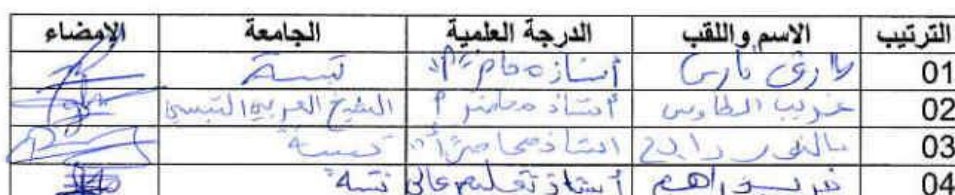 الترتيب الاسم واللقب الدرجة العلمية الجامعة الامضاء
01 طارق أستاذ محاضر "أ" تبسة
02 غريب الطاوس أستاذ محاضر أ الشيخ العربي التبسي
03 بالنور رابح استاذ محاضر "أ" تبسة
04 أستاذ تعليم عالي تبسة